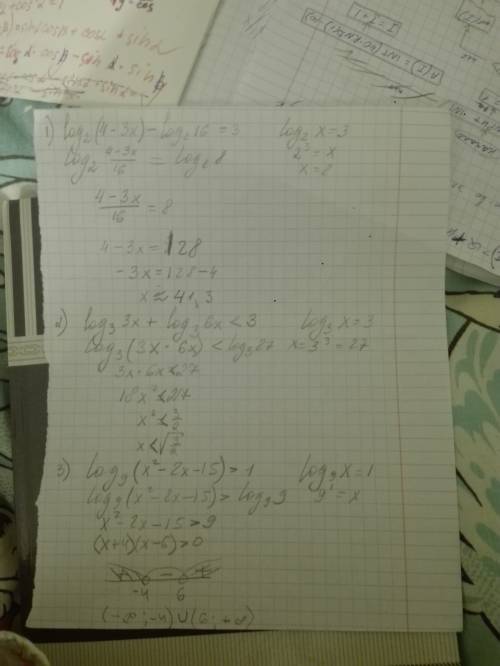 1) log₂(4-3x)-log₂16=3 log₂x=3
log₂ (4-3x)/16 = log₂8 2³=x
x=8
(4-3x)/16 = 8
4-3x=128
-3x=128-4
x≈41,3
2) log₃3x+log₃6x<3 log₃x=3
log₃(3x·6x)<log₃27 x=3³=27
3x·6x<27
18x²<27
x²<3/2
x<√(3/2)
3) log₉(x²-2x-15)>1 log₉x=1
log₉(x²-2x-15)>log₉9 9¹=x
x²-2x-15>9
(x+4)(x-6)>0
+ - +
-4 6
(-∞;-4)∪(6;+∞)